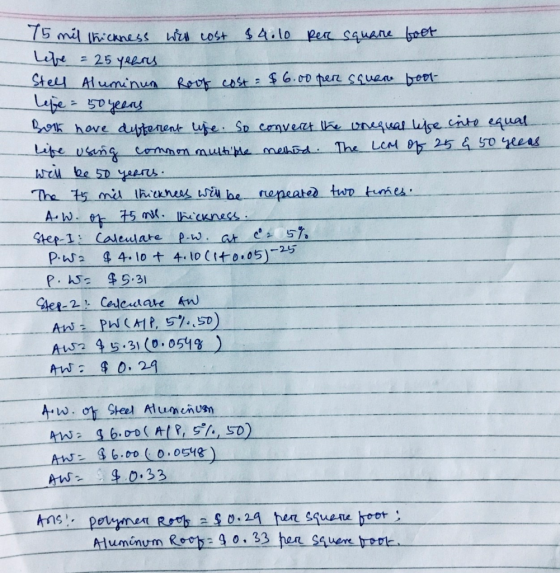 75 mil thickness will cost $4.10 per square foot
Life = 25 years
Steel Aluminum Roof cost = $6.00 per square foot
Life = 50 years
Both have different life. So convert the unequal life into equal
life using common multiple method. The LCM of 25 & 50 years
will be 50 years.
The 75 mil thickness will be repeated two times.
A.W. of 75 mil. thickness.
Step-I: Calculate P.W. at i = 5%
P.W = $4.10 + 4.10 (1+0.05)^-25
P.W = $5.31
Step-2: Calculate AW
AW = PW (A/P, 5%, 50)
AW = $5.31 (0.0548)
AW = $0.29
A.W. of Steel Aluminum
AW = $6.00 (A/P, 5%, 50)
AW = $6.00 (0.0548)
AW = $0.33
Ans:- Polymer Roof = $0.29 per square foot;
Aluminum Roof = $0.33 per square foot.